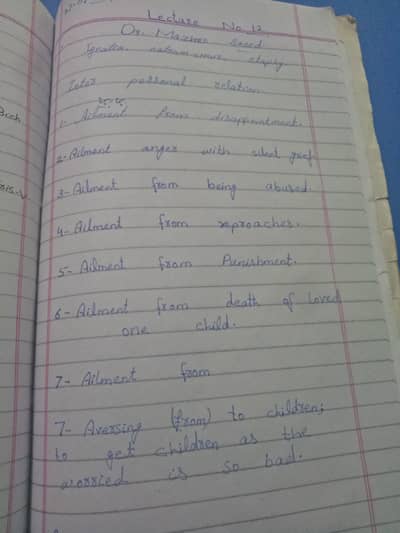 Lecture No 12
Dr. Maxwer Saeed
Ignatia, natrum mure,
Inter personal relation
1- Ailment from disappointment.
2- Ailment anger with silent grief
3- Ailment from being abused.
4- Ailment from reproaches.
5- Ailment from Punishment.
6- Ailment from death of loved
one child.
7- Ailment from
7- Aversing (from) to children;
to get children as the
worried is so bad.